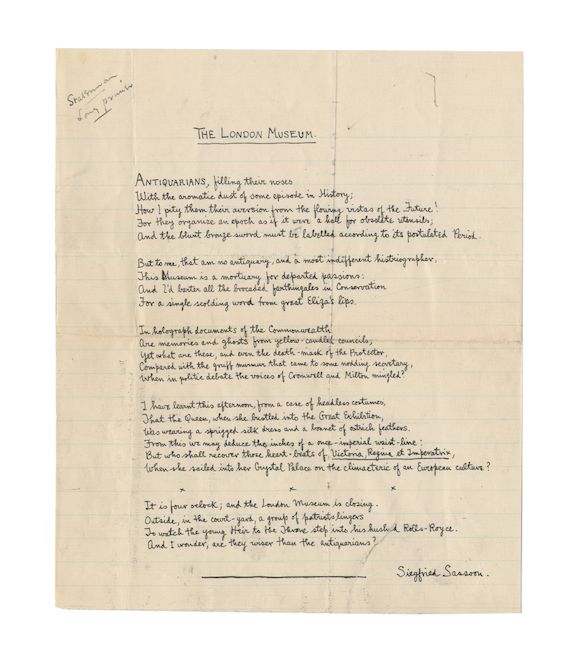 Statesman
Long primer
THE LONDON MUSEUM.
ANTIQUARIANS, filling their noses
With the aromatic dust of some episode in History;
How I pity them their aversion from the flowing vistas of the Future!
For they organize an epoch as if it were a hall for obsolete utensils;
And the blunt bronze sword must be labelled according to its postulated Period.
But to me, that am no antiquary, and a most indifferent histriographer,
This Museum is a mortuary for departed passions:
And I'd barter all the brocaded farthingales in Conservation
For a single scolding word from great Eliza's lips.
In holograph documents of the Commonwealth
Are memories and ghosts from yellow-candled councils;
Yet what are these, and even the death-mask of the Protector,
Compared with the gruff murmur that came to some nodding secretary,
When in politic debate the voices of Cromwell and Milton mingled?
I have learnt this afternoon, from a case of headless costumes,
That the Queen, when she bustled into the Great Exhibition,
Was wearing a sprigged silk dress and a bonnet of ostrich feathers.
From this we may deduce the inches of a once-imperial waist-line:
But who shall recover those heart-beats of Victoria, Regina et Imperatrix,
When she sailed into her Crystal Palace on the climacteric of an European culture?
x x x x
It is four oclock; and the London Museum is closing.
Outside, in the court-yard, a group of patriots lingers
To watch the young Heir to the Throne step into his hushed Rolls-Royce.
And I wonder, are they wiser than the antiquarians?
Siegfried Sassoon.